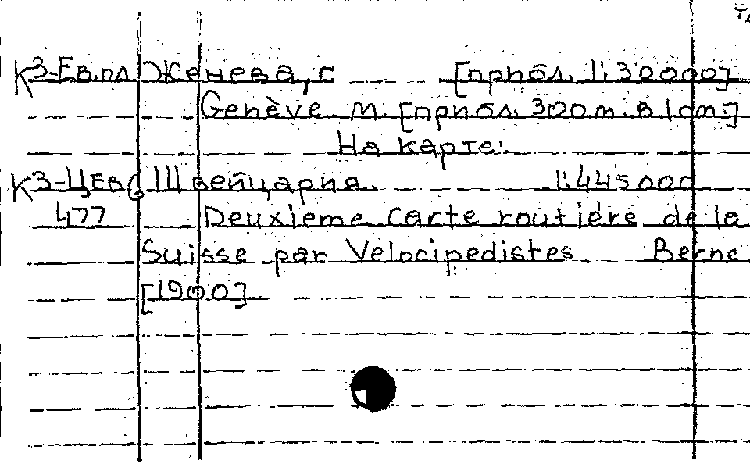 К3-Ев.пл Женева, г. [прибл. 1:30000]
Genève м. [прибл. 300 m. в 1 cm.]
На карте:
К3-ЦЕв Швейцария. 1:445000
477 Deuxieme carte routière de la
Suisse par Vélocipedistes Berne
[1900]